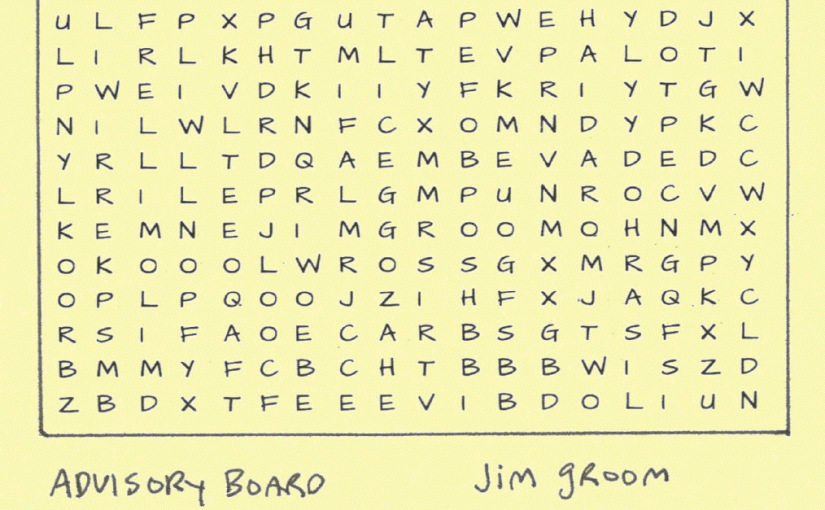 U L F P X P G U T A P W E H Y D J X
L I R L K H T M L T E V P A L O T I
P W E I V D K I I Y F K R I Y T G W
N I L W L R N F C X O M N D Y P K C
Y R L L T D Q A E M B E V A D E D C
L R I L E P R L G M P U N R O C V W
K E M N E J I M G R O O M O H N M X
O K O O O L W R O S S G X M R G P Y
O P L P Q O O J Z I H F X J A Q K C
R S I F A O E C A R B S G T S F X L
B M M Y F C B C H T B B B W I S Z D
Z B D X T F E E E V I B D O L I U N
ADVISORY BOARD
Jim gROOM